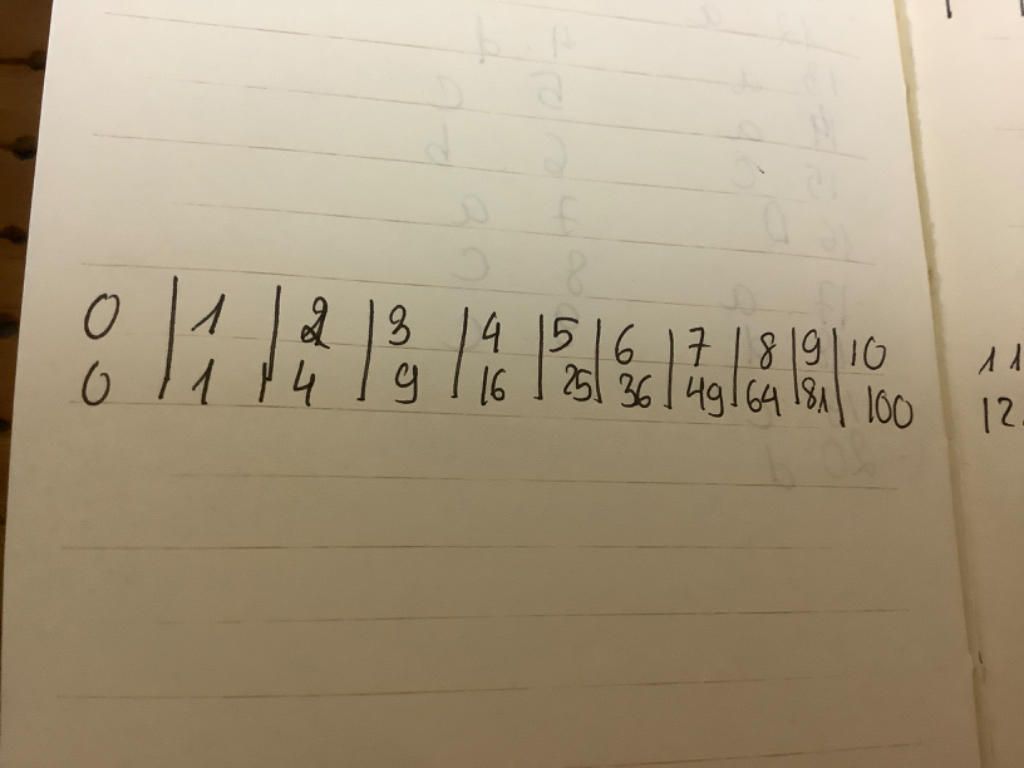 0 | 1 | 2 | 3 | 4 | 5 | 6 | 7 | 8 | 9 | 10
0 | 1 | 4 | 9 | 16 | 25 | 36 | 49 | 64 | 81 | 100
11
12